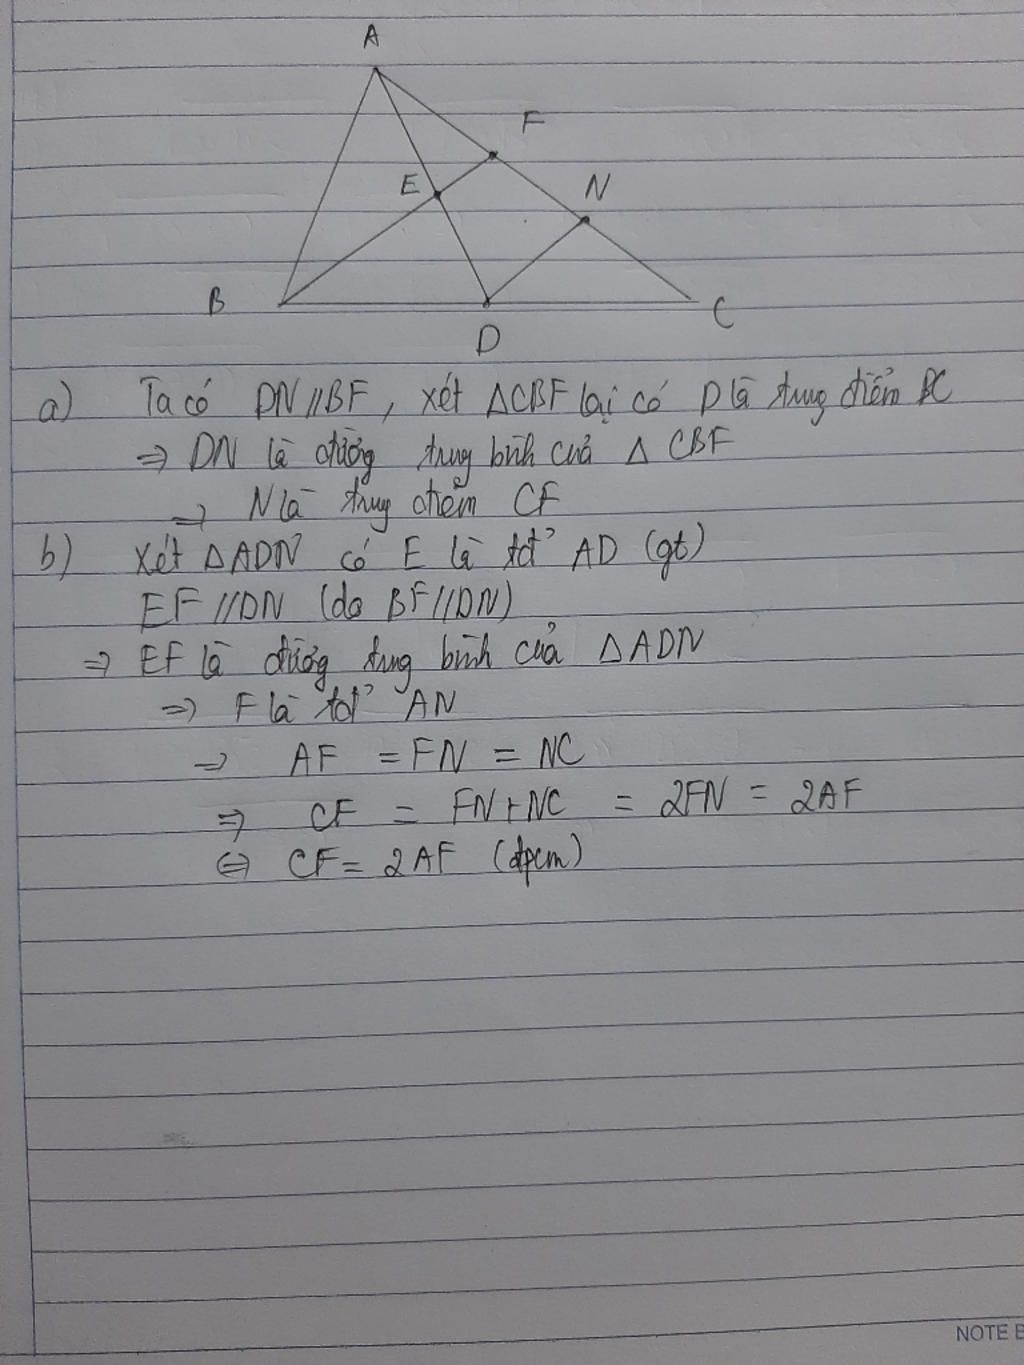 A
F
E
N
B
D
C
a) Ta có DN//BF, xét ΔCBF lại có D là trung điểm BC
=> DN là đường trung bình của Δ CBF
=> N là trung điểm CF
b) Xét ΔADN có E là tđ' AD (gt)
EF//DN (do BF//DN)
=> EF là đường trung bình của ΔADN
=> F là tđ' AN
=> AF = FN = NC
=> CF = FN+NC = 2FN = 2AF
<=> CF = 2AF (đpcm)